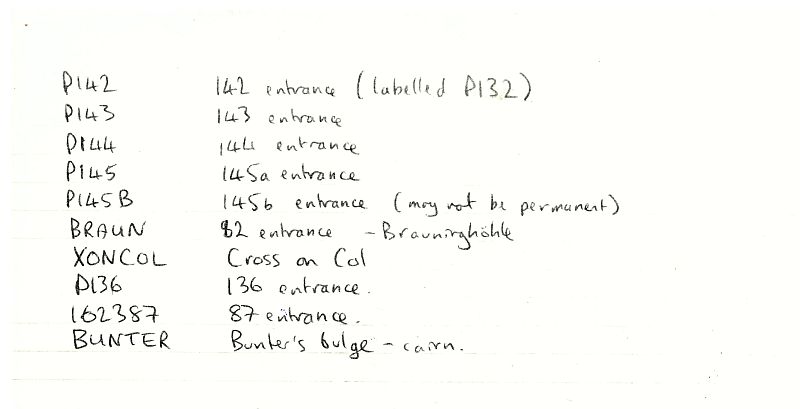 P142 142 entrance (labelled P132)
P143 143 entrance
P144 144 entrance
P145 145a entrance
P145B 145b entrance (may not be permanent)
BRAUN 82 entrance - Brauninghöhle
XONCOL Cross on Col
P136 136 entrance.
162387 87 entrance.
BUNTER Bunter's bulge - cairn.